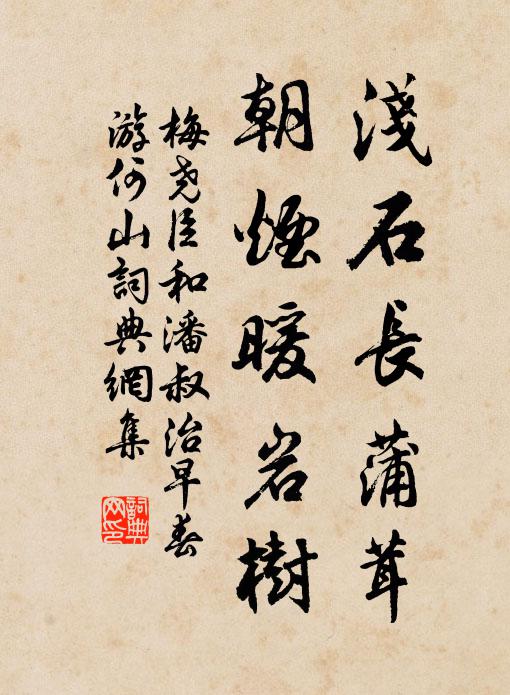 淺石長蒲茸
朝煙暖岩樹
梅尧臣和潘叔治早春
游何山詞典網集
詞典
网印